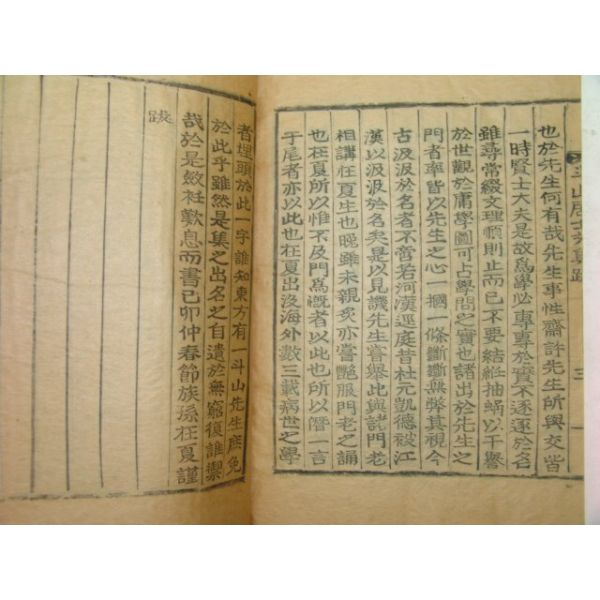 也於先生何有哉先生事性齋許先生所與交皆
一時賢士大夫是故爲學必專專於實不逐逐於名
雖尋常綴文理順則止而已不要結絵抽蜩以干譽
於世觀於庸學圖可占學問之實也諸出於先生之
門者率皆以先生之心一摑一條斷斷無弊其視今
古汲汲於名者不啻若河漢逕庭昔杜元凱德被江
漢以汲汲於名矣是以見譏先生嘗擧此與諸門老
相講在夏生也晚雖未親炙亦嘗艶服門老之誦
也在夏所以惟不及門爲慨者以此也所以僭一言
于尾者亦以此也在夏出沒海外數三載病世之學
者埋頭於此一字誰知東方有一斗山先生庶免
於此乎雖然是集之出名之自遺於無窮復誰禦
哉於是斂衽歎息而書己卯仲春節族孫在夏謹
跋
斗山居士文集跋
三